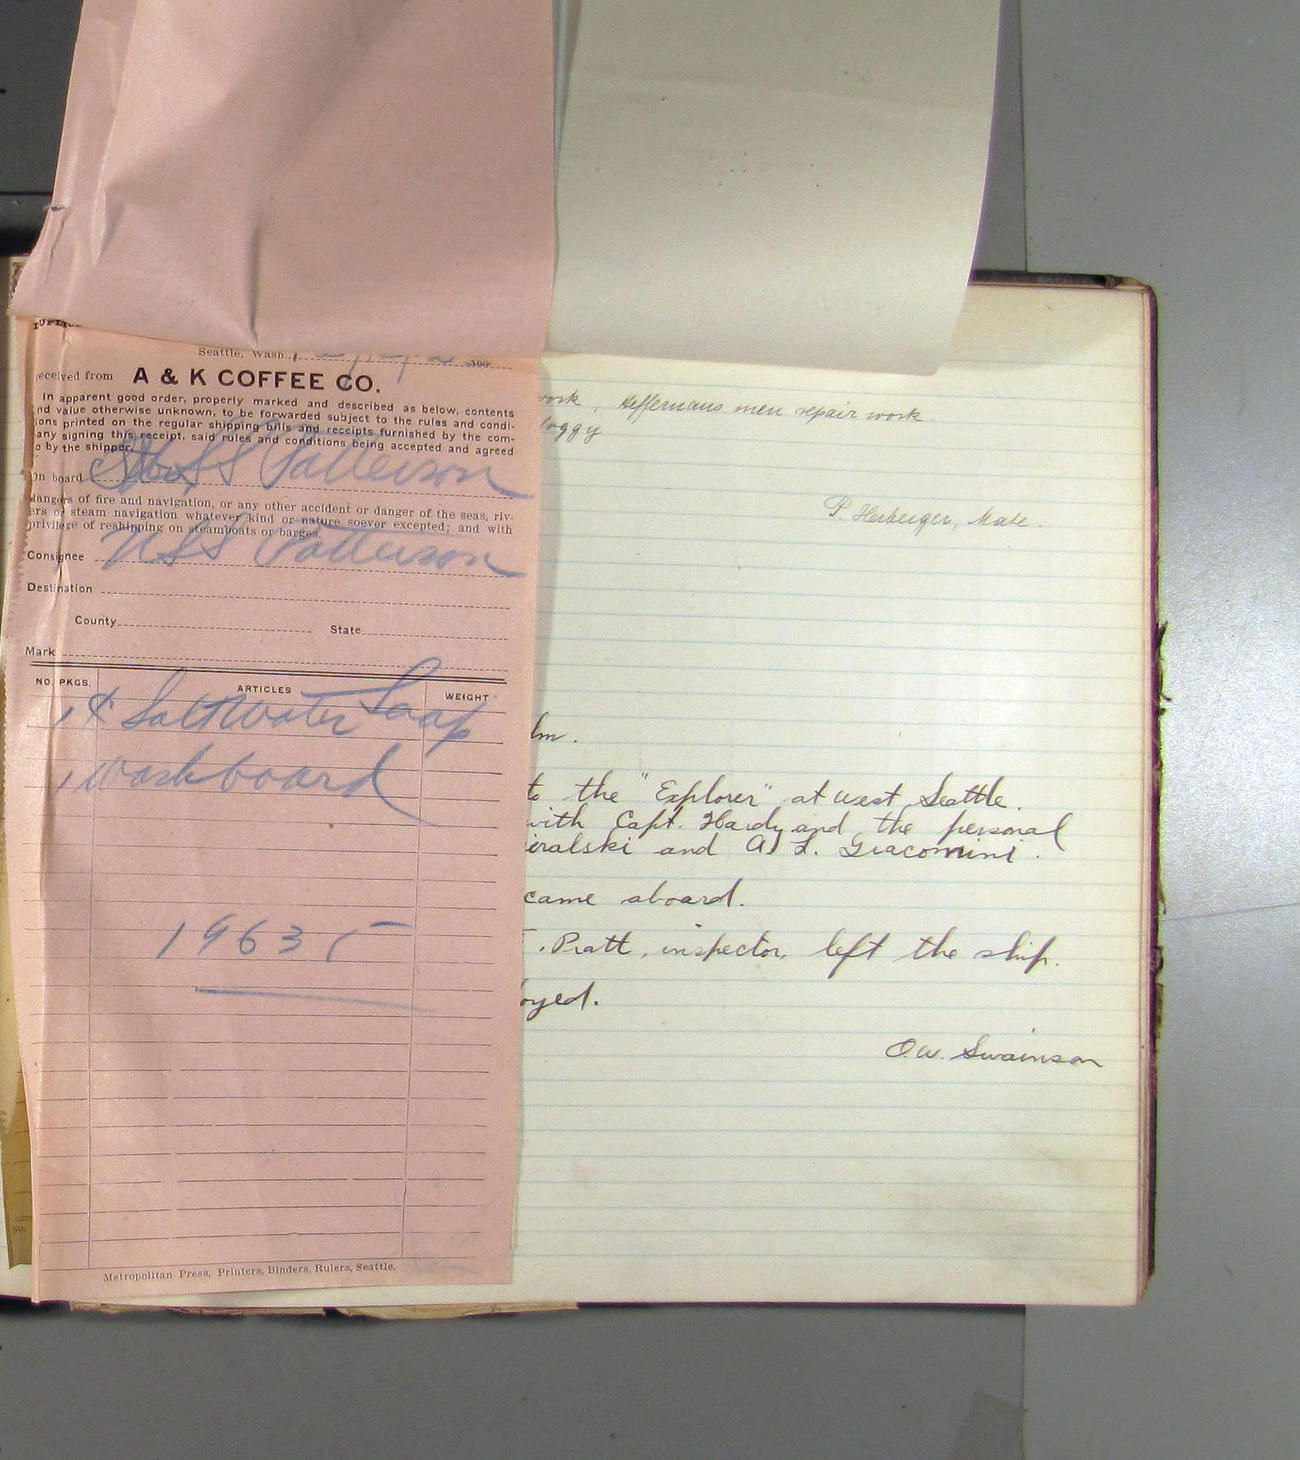 Seattle, Wash.,
eceived from A & K COFFEE CO.
In apparent good order, properly marked and described as below, contents
nd value otherwise unknown, to be forwarded subject to the rules and condi-
ions printed on the regular shipping bills and receipts furnished by the com-
any signing this receipt, said rules and conditions being accepted and agreed
o by the shipper.
On board SS Patterson
dangers of fire and navigation, or any other accident or danger of the seas, riv-
ers or steam navigation whatever kind or nature soever excepted; and with
privilege of reshipping on steamboats or barges.
Consignee USS Patterson
Destination
County State
Mark
NO. PKGS. ARTICLES WEIGHT
1 Saltwater Soap
1 Washboard
1963
Metropolitan Press, Printers, Binders, Rulers, Seattle.
work, Heffernans men repair work
foggy
P. Herberger, Mate.
lm.
to the "Explorer" at West Seattle.
with Capt. Hardy and the personal
iralski and A. L. Giacomini.
came aboard.
. Pratt, inspector, left the ship.
oyed.
O.W. Swainson